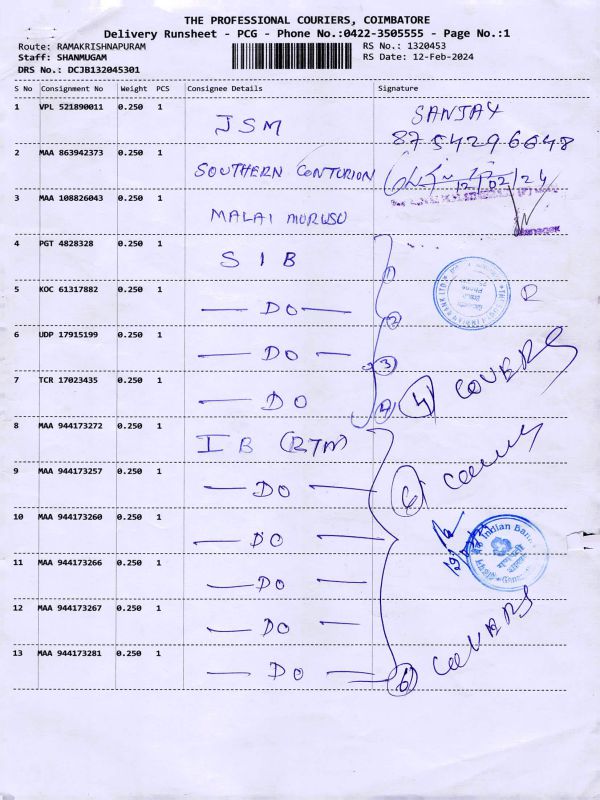 THE PROFESSIONAL COURIERS, COIMBATORE
Delivery Runsheet - PCG - Phone No.:0422-3505555 - Page No.:1
Route: RAMAKRISHNAPURAM RS No.: 1320453
Staff: SHANMUGAM RS Date: 12-Feb-2024
DRS No.: DCJB132045301
S No Consignment No Weight PCS Consignee Details Signature
1 VPL 521890011 0.250 1 JSM SANJAY
8754296648
2 MAA 863942373 0.250 1 SOUTHERN CONTURION 12/02/24
3 MAA 108826043 0.250 1 MALAI MURUSU
Manager
4 PGT 4828328 0.250 1 SIB 1
5 KOC 61317882 0.250 1 — DO — 2
6 UDP 17915199 0.250 1 — DO — 3
7 TCR 17023435 0.250 1 — DO 4 4 COVERS
8 MAA 944173272 0.250 1 IB (RTM)
9 MAA 944173257 0.250 1 — DO — 6
10 MAA 944173260 0.250 1 — DO — Indian Bank
11 MAA 944173266 0.250 1 — DO —
12 MAA 944173267 0.250 1 — DO — COVERS
13 MAA 944173281 0.250 1 — DO — 6